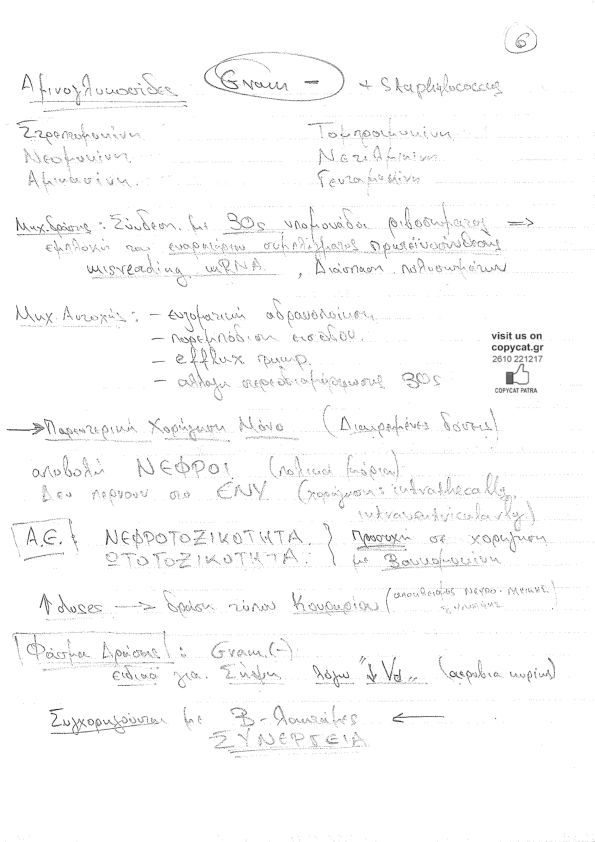 6
Αμινογλυκοσίδες Gram - + Staphylococcus
Στρεπτομυκίνη Τομπραμυκίνη
Νεομυκίνη Νετιλμικίνη
Αμικασίνη Γενταμυκίνη
Μηχ. δράσης: Σύνδεση με 30s υπομονάδα ριβοσώματος =>
εμπλοκή του εναρκτήριου συμπλέγματος πρωτεϊνοσύνθεσης
misreading mRNA, Διάσπαση πολυσωμάτων
Μηχ. Αντοχής: - ενζυματική αδρανοποίηση
- παρεμπόδιση εισόδου
- efflux pump
- αλλαγή στερεοδιαμόρφωσης 30s
visit us on
copycat.gr
2610 221217
COPYCAT PATRA
→ Παρεντερική Χορήγηση Μόνο (Διαιρεμένες δόσεις)
αποβολή ΝΕΦΡΟΙ (πολικά μόρια)
Δεν περνουν στο ΕΝΥ (χορήγηση: intrathecally,
intraventricularly)
Α.Ε. } ΝΕΦΡΟΤΟΞΙΚΟΤΗΤΑ } Προσοχή σε χορήγηση
ΩΤΟΤΟΞΙΚΟΤΗΤΑ } με Βανκομυκίνη
↑doses → δράση τύπου Κουραρίου (αποκλεισμός νευρο-μυικής
σύναψης)
Φάσμα Δράσης: Gram (-)
ειδικά για Σήψη λόγω "↓Vd" (αερόβια κυρίως)
Συγχορηγούνται με Β-λακτάμες ←
ΣΥΝΕΡΓΕΙΑ